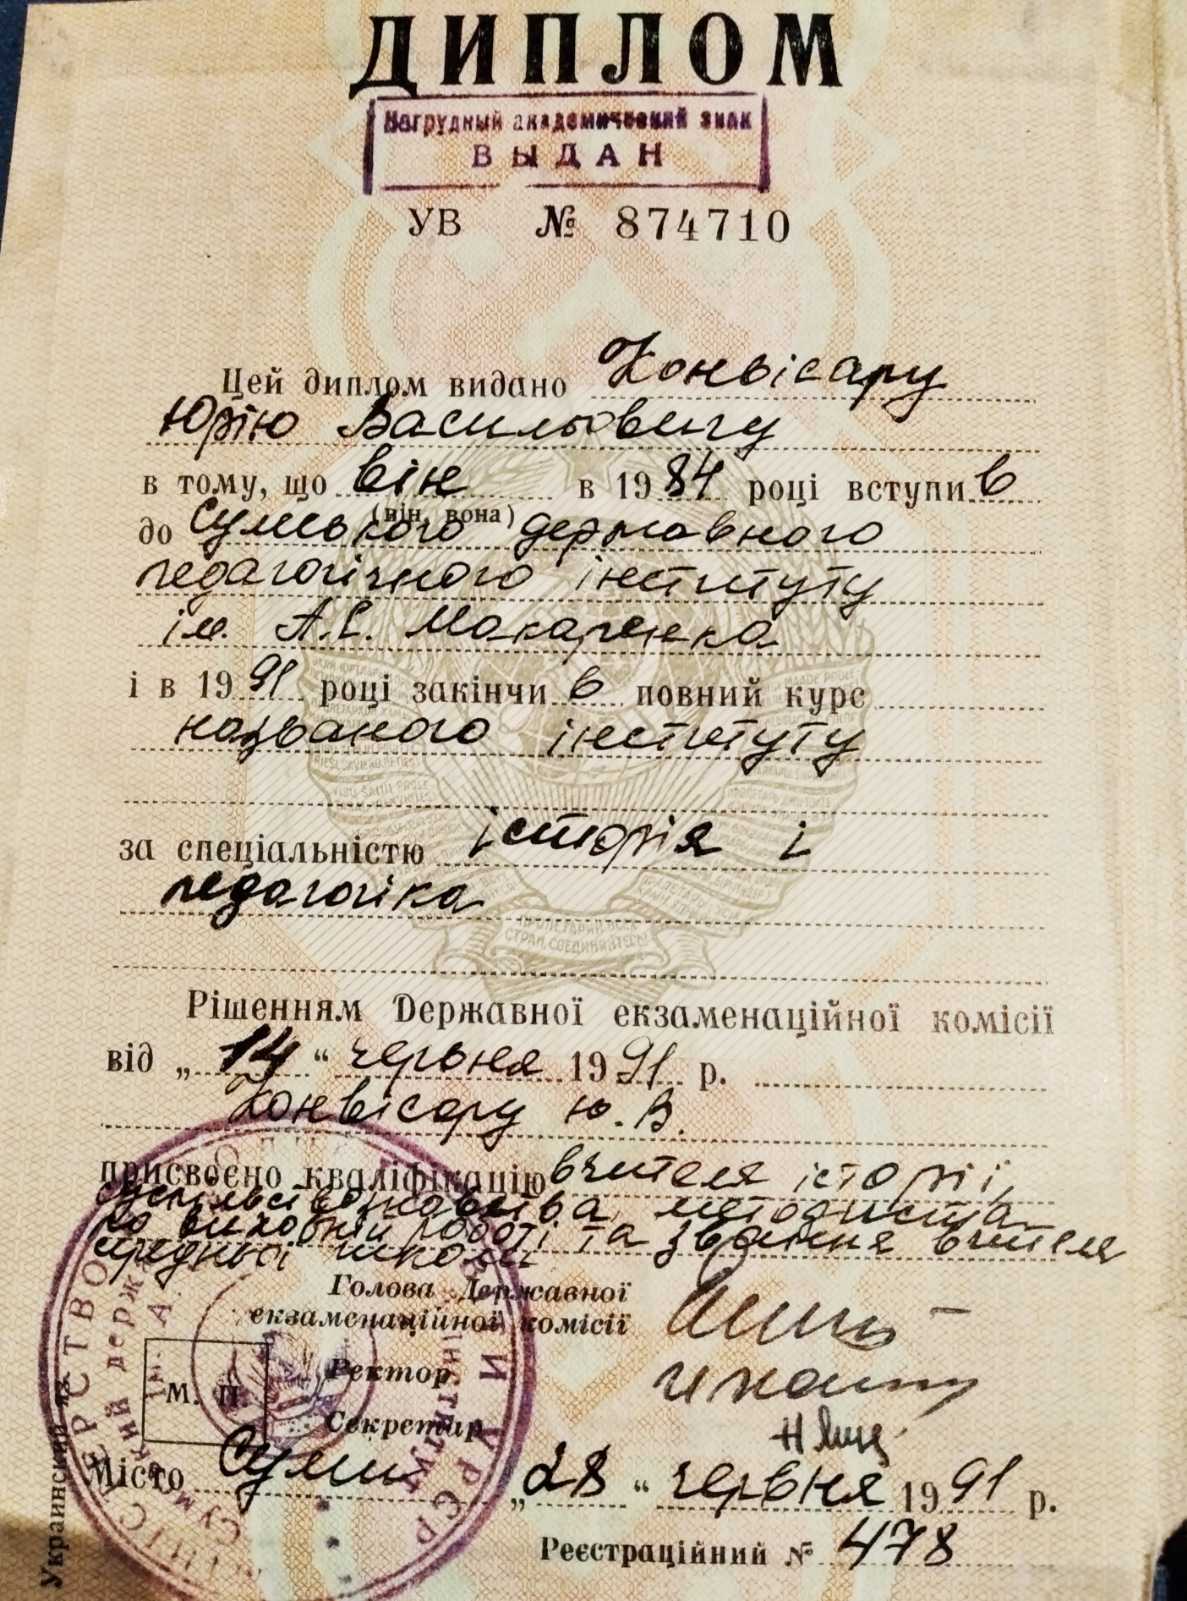 ДИПЛОМ
Нагрудный академический знак
ВЫДАН
УВ № 874710
Цей диплом видано Конвісару
Юрію Васильовичу
в тому, що він в 1984 році вступив
(він, вона)
до Сумського державного
педагогічного інституту
ім. А.С. Макаренка
і в 1991 році закінчив повний курс
названого інституту
за спеціальністю історія і
педагогіка
Рішенням Державної екзаменаційної комісії
від „14“ червня 1991 р.
Конвісару Ю.В.
присвоєно кваліфікацію вчителя історії,
суспільствознавства, методиста
по виховній роботі та звання вчителя
середньої школи
Голова Державної
екзаменаційної комісії
Ректор
М. П.
Секретар
Місто Суми „28“ червня 1991 р.
Реєстраційний № 478
Украинский яз.